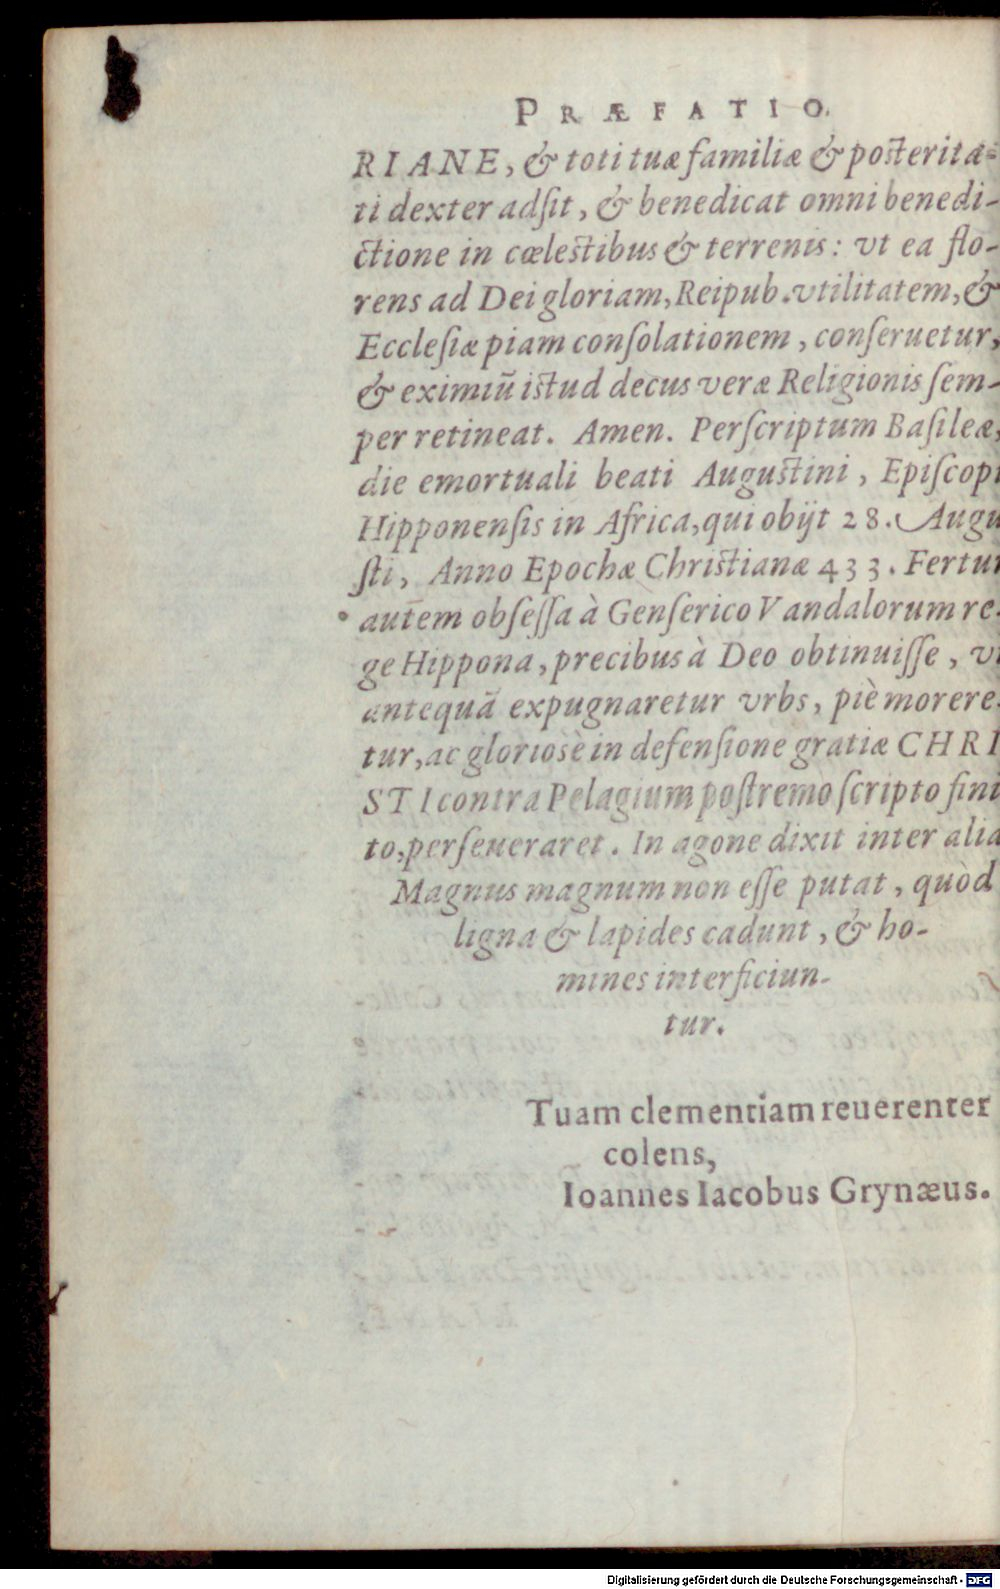 PRÆFATIO.
RIANE, & toti tuæ familiæ & posterita-
ti dexter adſit, & benedicat omni benedi-
ctione in cœlestibus & terrenis: vt ea flo-
rens ad Dei gloriam, Reipub. vtilitatem, &
Eccleſiæ piam conſolationem, conſeruetur,
& eximiū istud decus veræ Religionis ſem-
per retineat. Amen. Perſcriptum Baſileæ,
die emortuali beati Augustini, Epiſcopi
Hipponenſis in Africa, qui obijt 28. Augu
ſti, Anno Epochæ Christianæ 433. Fertur
autem obſeſſa à Genſerico Vandalorum re-
ge Hippona, precibus à Deo obtinuiſſe, vt
antequā expugnaretur vrbs, piè morere-
tur, ac gloriosè in defenſione gratiæ CHRI
STI contra Pelagium postremò ſcripto fini
to, perſeueraret. In agone dixit inter alia
Magnus magnum non eſſe putat, quòd
ligna & lapides cadunt, & ho-
mines interficiun-
tur.
Tuam clementiam reuerenter
colens,
Ioannes Iacobus Grynæus.
Digitalisierung gefördert durch die Deutsche Forschungsgemeinschaft - DFG